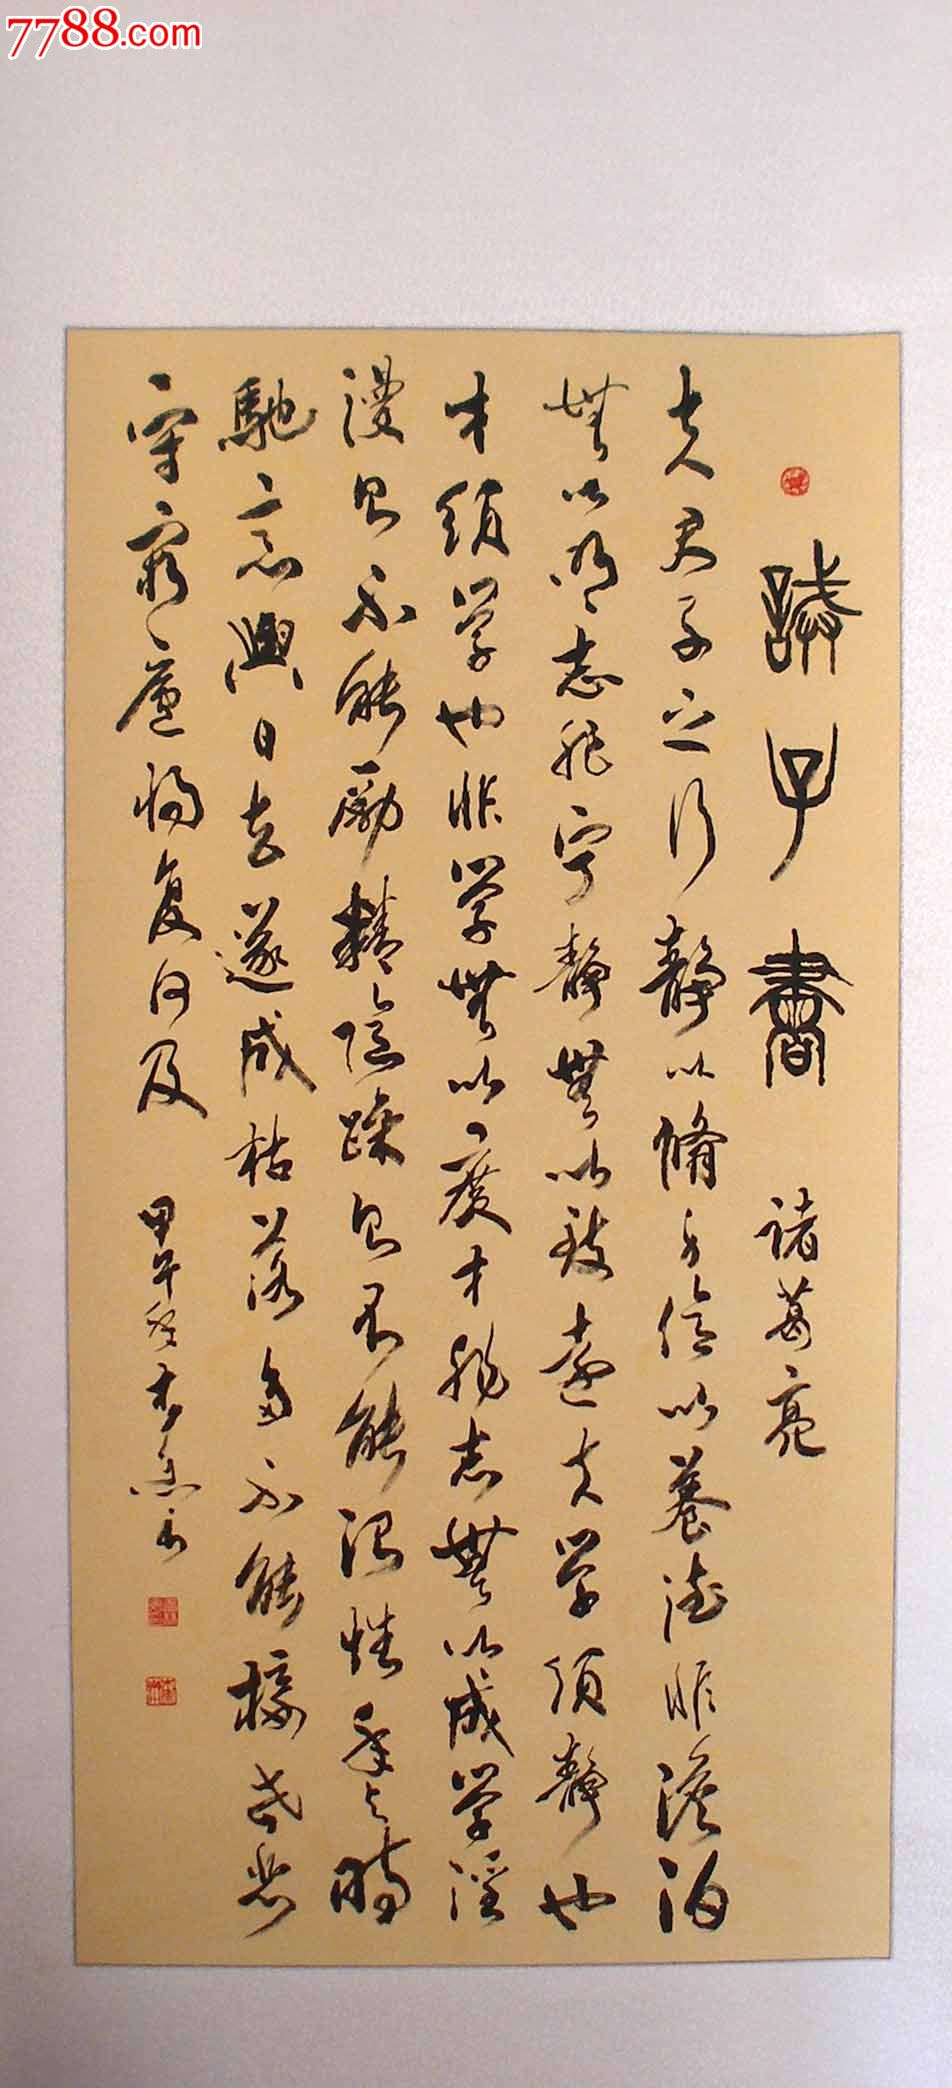 7788.com
誡子書 諸葛亮
夫君子之行靜以脩身儉以養德非澹泊
無以明志非宁靜無以致遠夫学須靜也
才須学也非学無以廣才非志無以成学淫
漫則不能勵精險躁則不能治性年与時
馳意與日去遂成枯落多不能接世悲
守窮廬將復何及 甲午